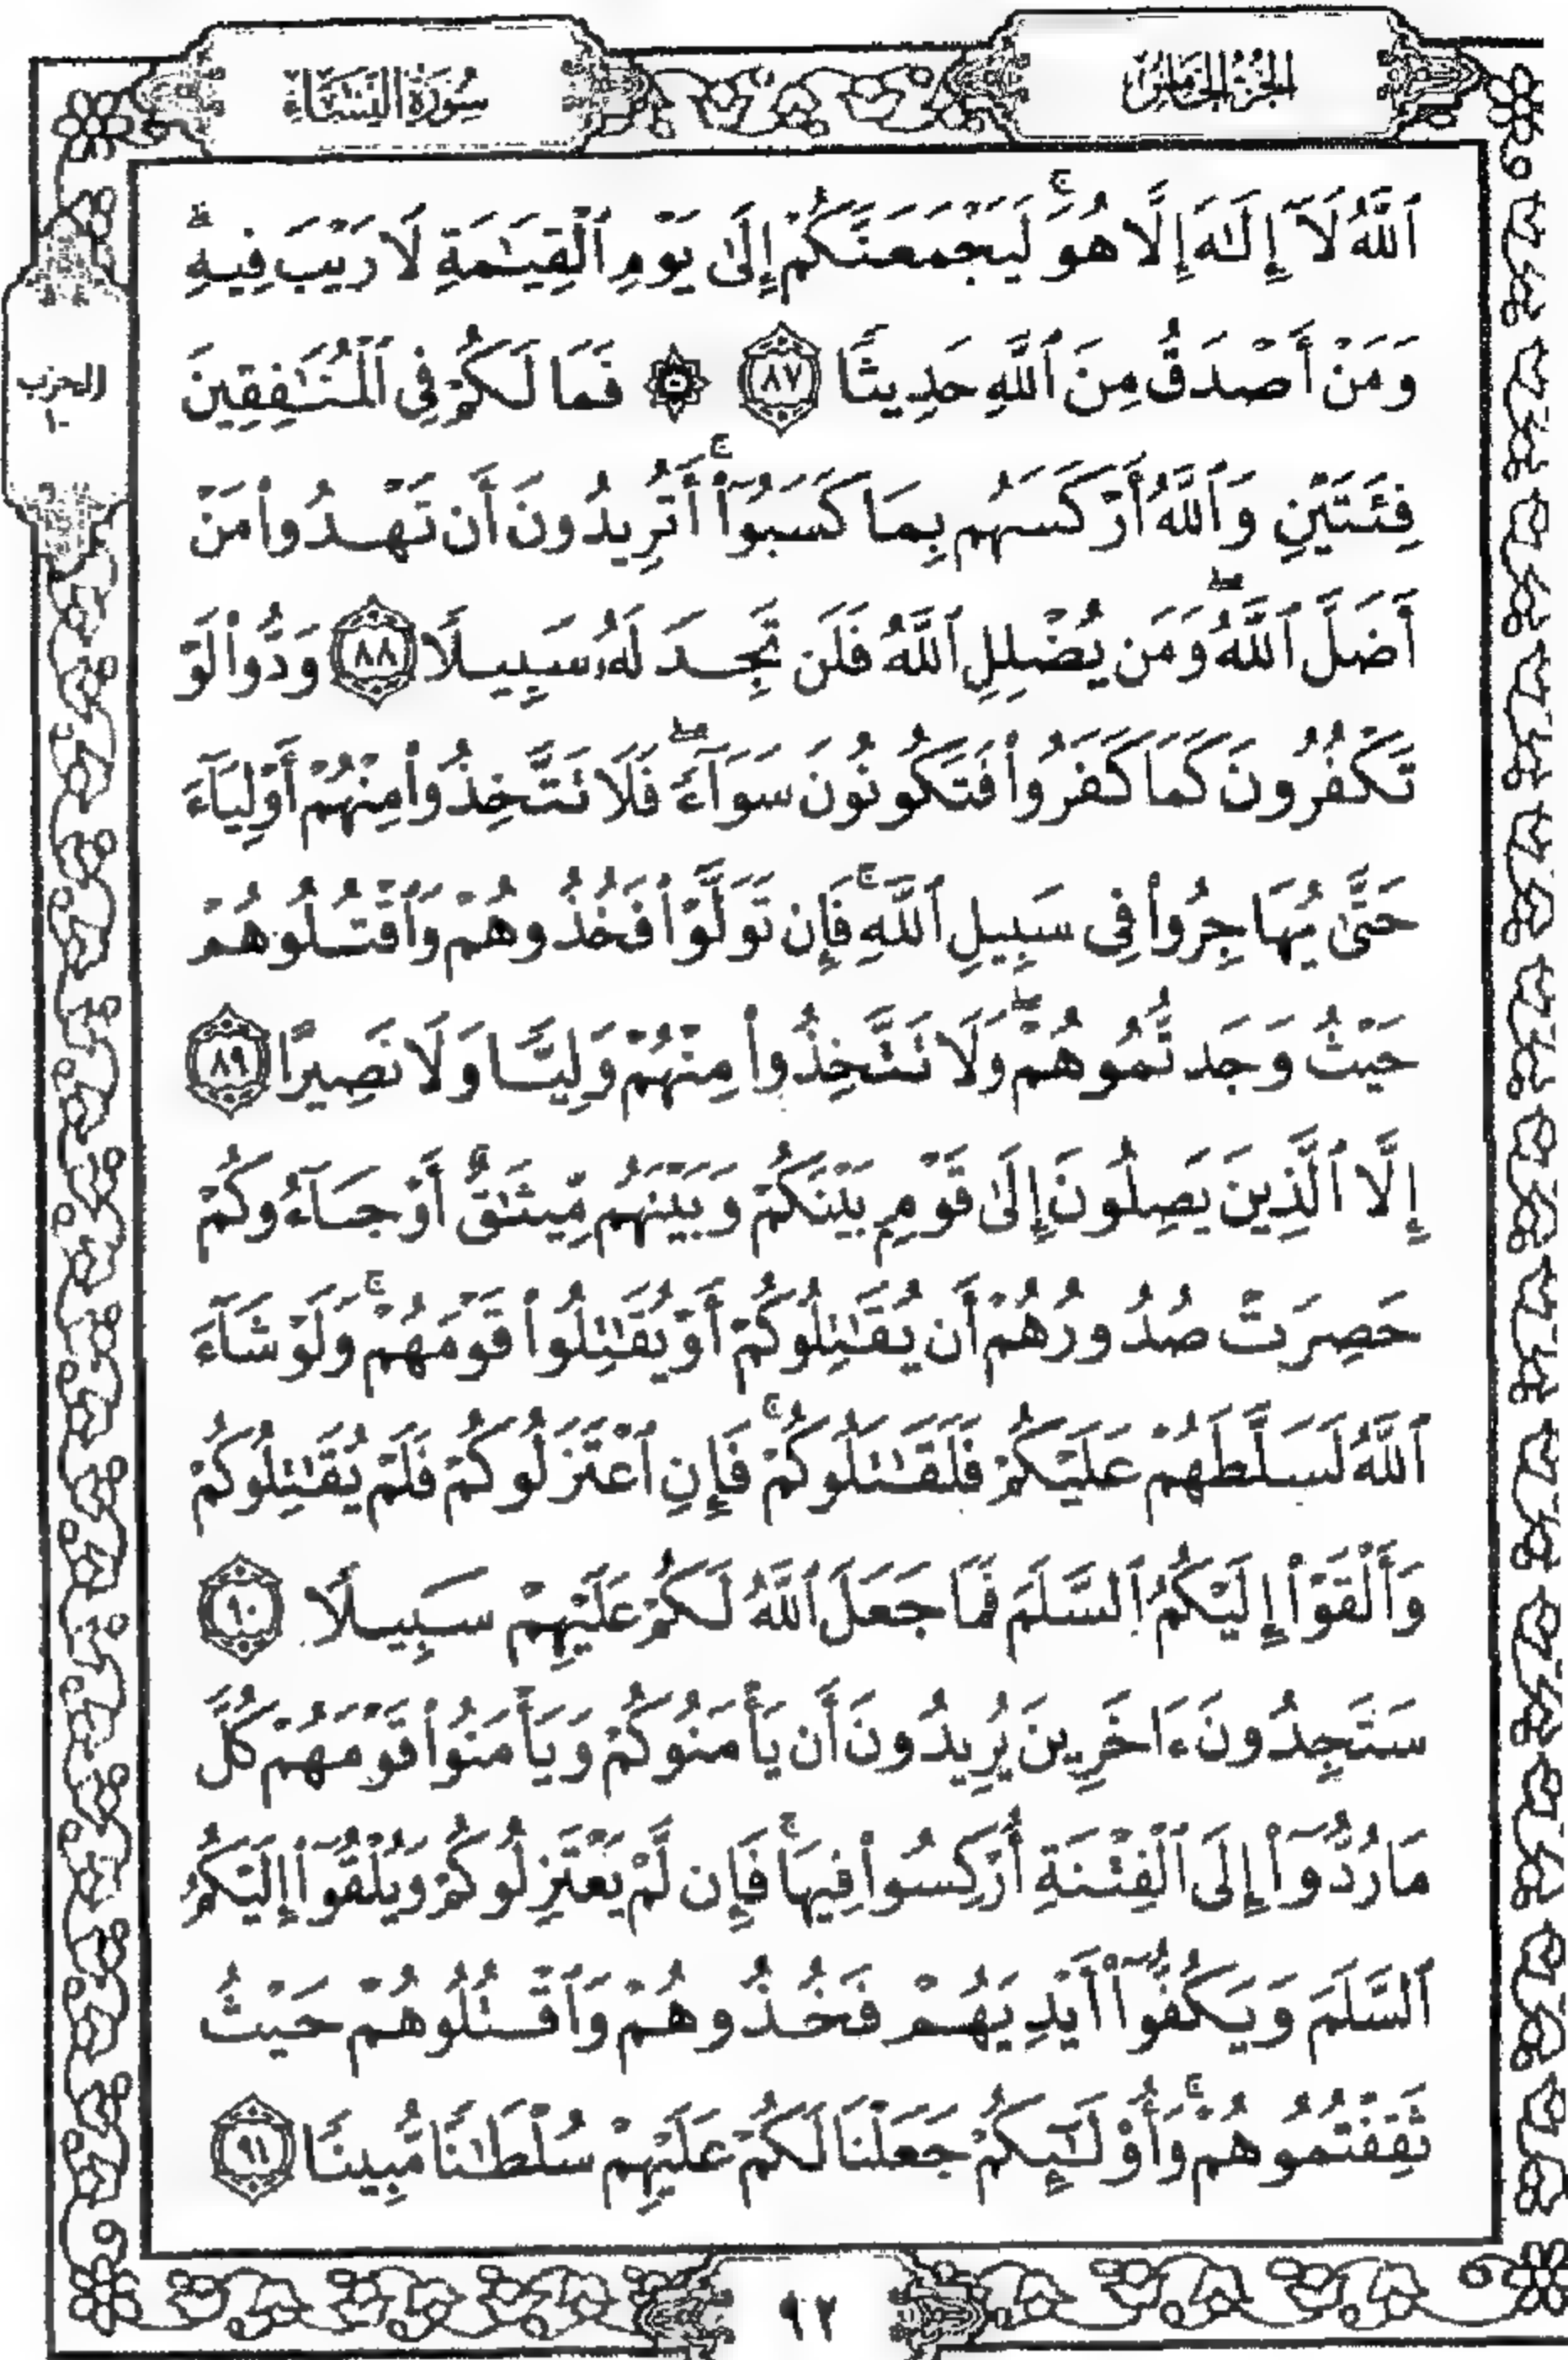 الجزء الخامس
سورة النساء
ٱللَّهُ لَآ إِلَٰهَ إِلَّا هُوَ ۚ لَيَجْمَعَنَّكُمْ إِلَىٰ يَوْمِ ٱلْقِيَٰمَةِ لَا رَيْبَ فِيهِ ۗ
وَمَنْ أَصْدَقُ مِنَ ٱللَّهِ حَدِيثًا ٨٧ ۞ فَمَا لَكُمْ فِى ٱلْمُنَٰفِقِينَ
الحزب
١٠
فِئَتَيْنِ وَٱللَّهُ أَرْكَسَهُم بِمَا كَسَبُوٓا۟ ۚ أَتُرِيدُونَ أَن تَهْدُوا۟ مَنْ
أَضَلَّ ٱللَّهُ ۖ وَمَن يُضْلِلِ ٱللَّهُ فَلَن تَجِدَ لَهُۥ سَبِيلًا ٨٨ وَدُّوا۟ لَوْ
تَكْفُرُونَ كَمَا كَفَرُوا۟ فَتَكُونُونَ سَوَآءً ۖ فَلَا تَتَّخِذُوا۟ مِنْهُمْ أَوْلِيَآءَ
حَتَّىٰ يُهَاجِرُوا۟ فِى سَبِيلِ ٱللَّهِ ۚ فَإِن تَوَلَّوْا۟ فَخُذُوهُمْ وَٱقْتُلُوهُمْ
حَيْثُ وَجَدتُّمُوهُمْ ۖ وَلَا تَتَّخِذُوا۟ مِنْهُمْ وَلِيًّا وَلَا نَصِيرًا ٨٩
إِلَّا ٱلَّذِينَ يَصِلُونَ إِلَىٰ قَوْمٍۭ بَيْنَكُمْ وَبَيْنَهُم مِّيثَٰقٌ أَوْ جَآءُوكُمْ
حَصِرَتْ صُدُورُهُمْ أَن يُقَٰتِلُوكُمْ أَوْ يُقَٰتِلُوا۟ قَوْمَهُمْ ۚ وَلَوْ شَآءَ
ٱللَّهُ لَسَلَّطَهُمْ عَلَيْكُمْ فَلَقَٰتَلُوكُمْ ۚ فَإِنِ ٱعْتَزَلُوكُمْ فَلَمْ يُقَٰتِلُوكُمْ
وَأَلْقَوْا۟ إِلَيْكُمُ ٱلسَّلَمَ فَمَا جَعَلَ ٱللَّهُ لَكُمْ عَلَيْهِمْ سَبِيلًا ٩٠
سَتَجِدُونَ ءَاخَرِينَ يُرِيدُونَ أَن يَأْمَنُوكُمْ وَيَأْمَنُوا۟ قَوْمَهُمْ كُلَّ
مَا رُدُّوٓا۟ إِلَى ٱلْفِتْنَةِ أُرْكِسُوا۟ فِيهَا ۚ فَإِن لَّمْ يَعْتَزِلُوكُمْ وَيُلْقُوٓا۟ إِلَيْكُمُ
ٱلسَّلَمَ وَيَكُفُّوٓا۟ أَيْدِيَهُمْ فَخُذُوهُمْ وَٱقْتُلُوهُمْ حَيْثُ
ثَقِفْتُمُوهُمْ ۚ وَأُو۟لَٰٓئِكُمْ جَعَلْنَا لَكُمْ عَلَيْهِمْ سُلْطَٰنًا مُّبِينًا ٩١
٩٢